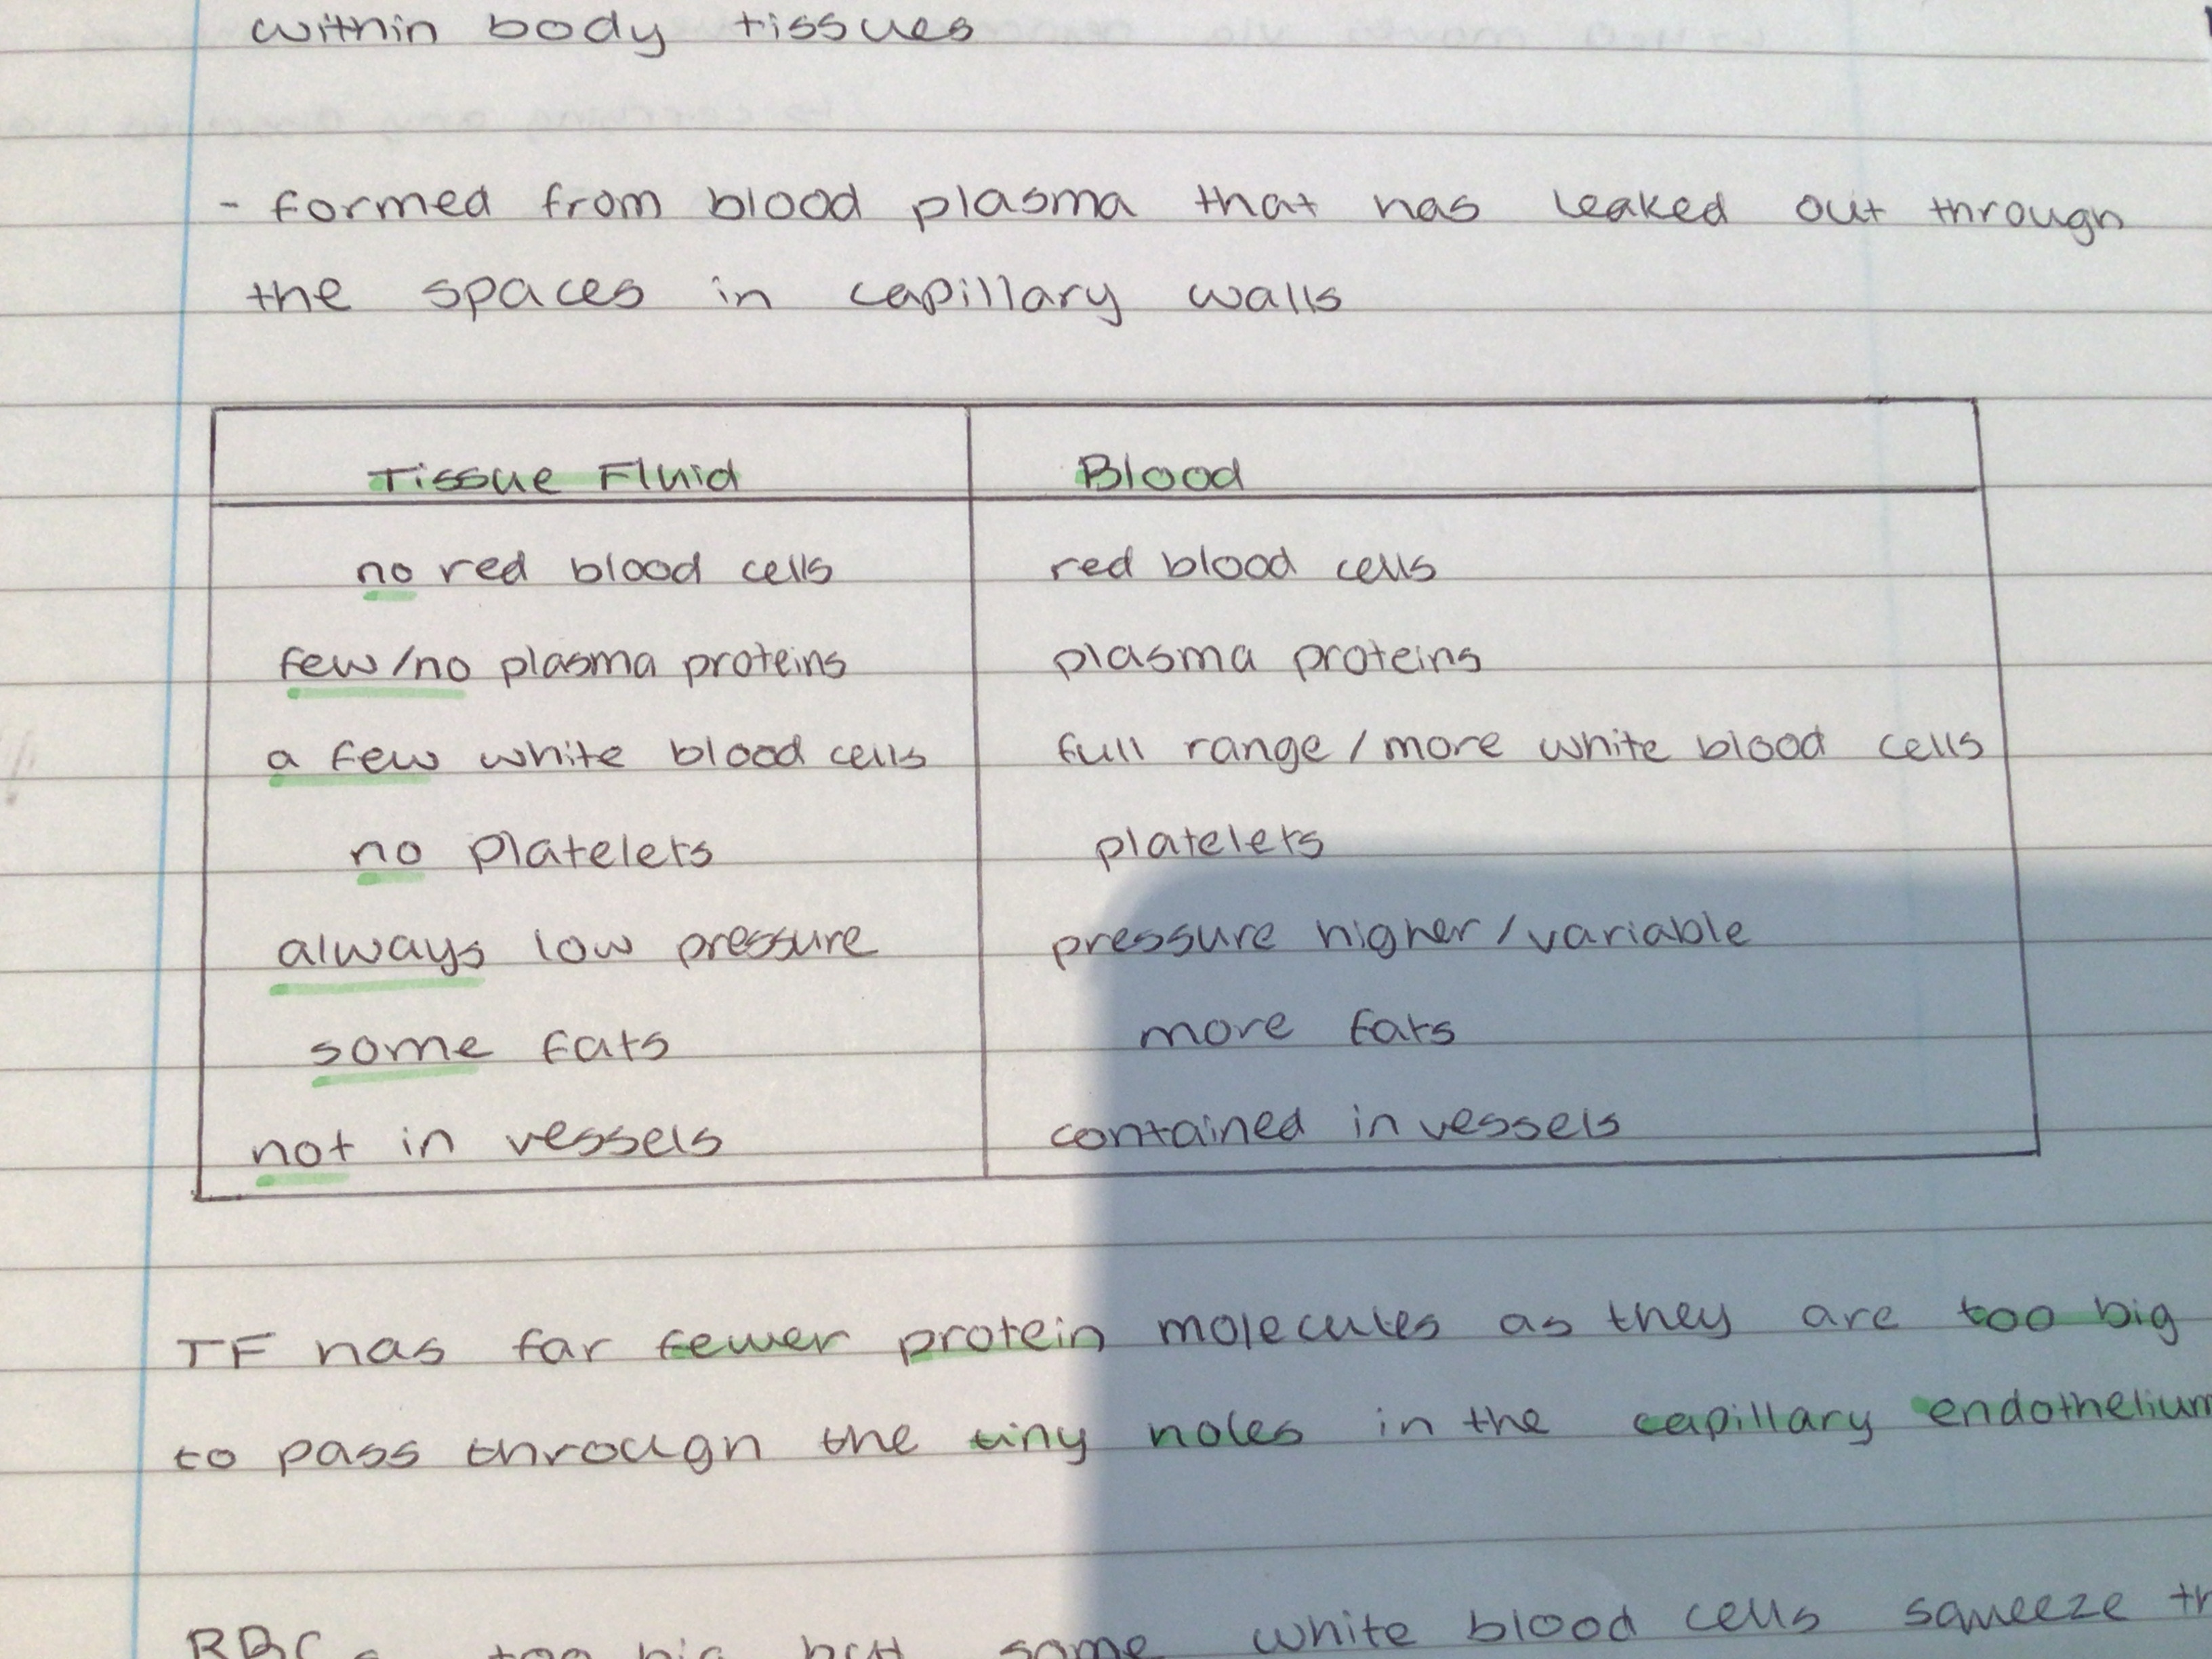 within body tissues
- formed from blood plasma that has leaked out through
the spaces in capillary walls
Tissue Fluid Blood
no red blood cells red blood cells
few/no plasma proteins plasma proteins
a few white blood cells full range / more white blood cells
no platelets platelets
always low pressure pressure higher/variable
some fats more fats
not in vessels contained in vessels
TF has far fewer protein molecules as they are too big
to pass through the tiny holes in the capillary endothelium
too big but some white blood cells squeeze